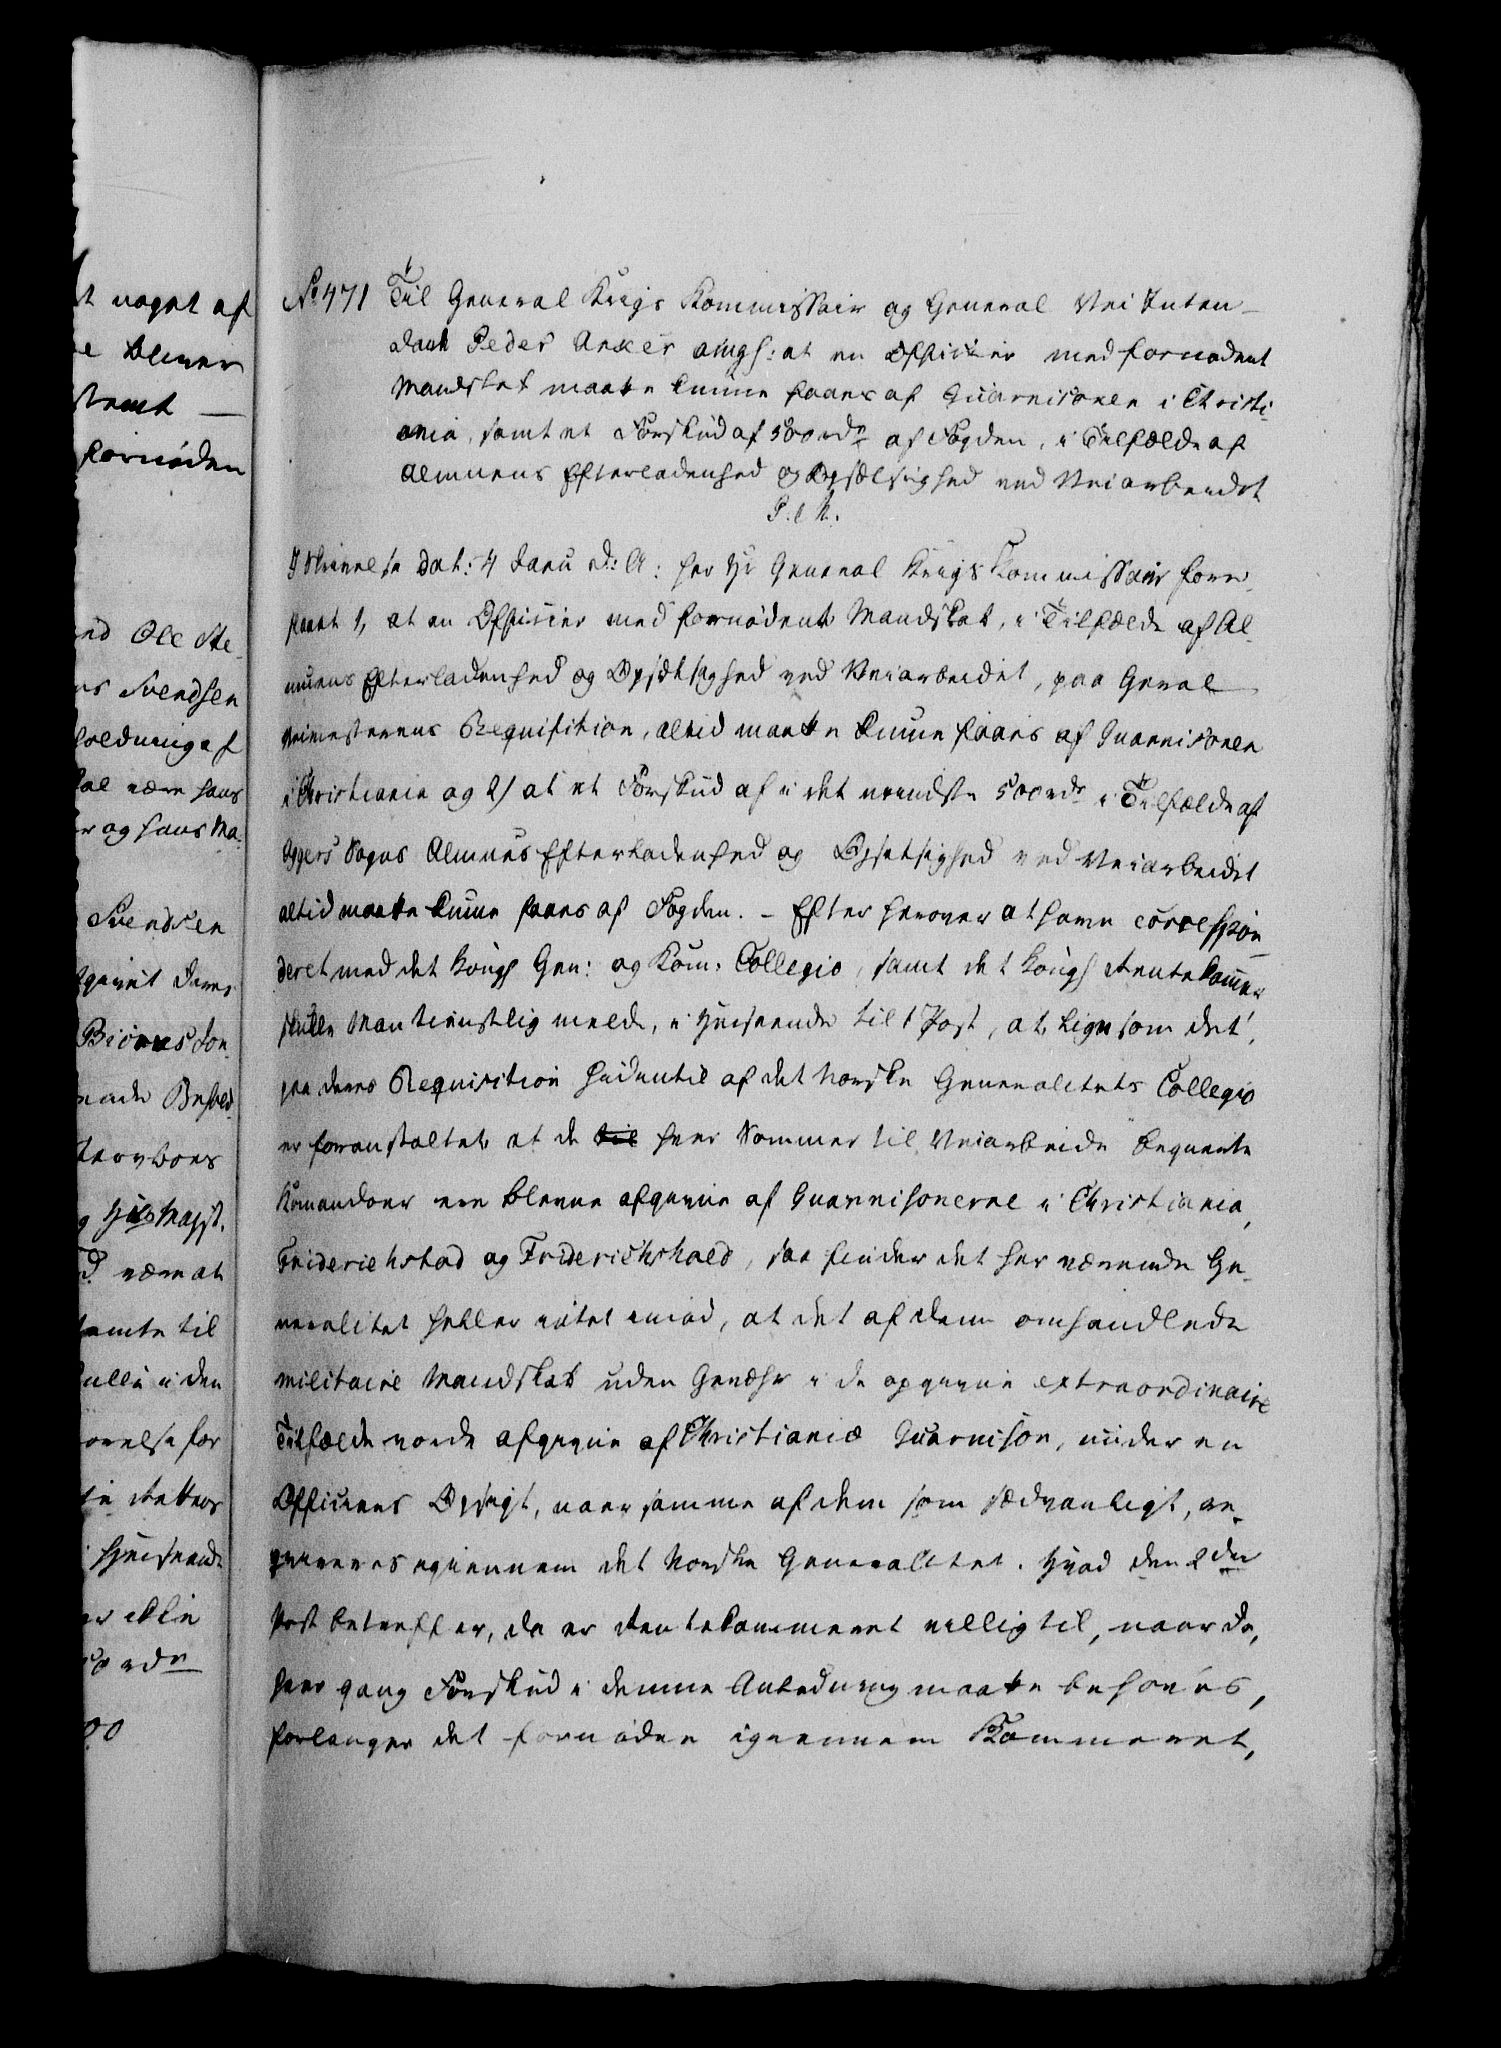 t noget af
e bliver
stemt —
fornøden
ved Ole Ste-
ns Svendsen
holdning af
kal være hans
er og hans Ma-
Svendsen
Biørns Jon-
made Beskod
Steevboes
g Hs Majst.
d være at
samte til
ulli i den
ørelse for
Hvisende
er ikke
50 rdr
No 471 Til General Krigs Kommissair og General Vei Inten-
dant Peder Anker angf: at en Officier med fornødent
Mandskab maatte kunne faaes af Guarnisonen i Christi-
ania, samt et Forskud af 500 rdr af Fogden, i Tilfælde af
Almuens Efterladenhed og Opsætsighed ved Veiarbeidet
P. e M.
I Skrivelse dat: 4 Janu d: A: har Hr General Krigs Kommissair fore-
slaaet 1, at en Officier med fornødent Mandskab, i Tilfælde af Al-
muens Efterladenhed og Opsætsighed ved Veiarbeidet, paa Geral
Veimesterens Requisition, altid maatte kunne faaes af Guarnisonen
i Christiania og 2) at et Forskud af i det mindste 500 rdr i Tilfælde af
Aggers Sogns Almues Efterladenhed og Opsætsighed ved Veiarbeidet
altid maatte kunne faaes af Fogden. – Efter herover at have correspon-
deret med det kongl Gen: og Kom: Collegio, samt det kongl Rentekammer
skulle Man tienstlig melde, i Henseende til 1 Post, at ligesom det,
paa deres Requisition hidentil af det Norske Generalitets Collegio
er foranstaltet at de til hver Sommer til Veiarbeide beqvemte
Komandoer ere blevne afgivne af Guarnisonerne i Christiania,
Friderichstad og Friderichshald, saa finder det her værende Ge-
neralitet heller intet imod, at det af dem omhandlede
militaire Mandskab uden Ophør i de opgivne extraordinaire
Tilfælde vorde afgivne af Christianiæ Guarnison, under en
Officiers Opsigt, naar samme af dem som sædvanligt, re-
qvireres igiennem det Norske Generalitet. Hvad den 2den
Post betreffer, da er Rentekammeret villig til, naar De,
hver gang Forskud i denne Anledning maatte behøves,
forlanger det fornøden igiennem Kammeret,